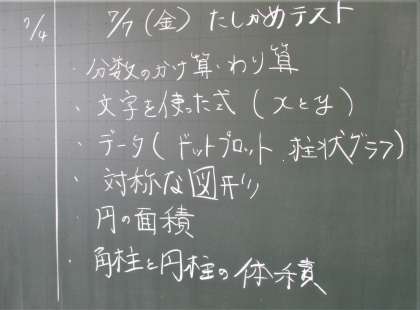 7/4
7/7 (金) たしかめテスト
・分数のかけ算・わり算
・文字を使った式 (xとy)
・データ(ドットプロット 柱状グラフ)
・対称な図形
・円の面積
・角柱と円柱の体積